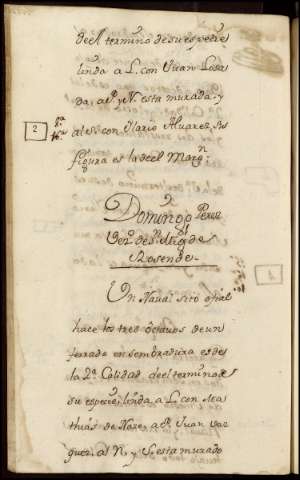 del termino de su especie
linda a L. con Juan Losa
da, a P. y N. esta murada y
al S. con Maria Alvarez. su
figura es la del Marg.n
2
Domingo Perez
Vez.o de S.n Mig.l de
Rosende
Un Naval sito
hace los tres Octavos de un
ferrado en sembradura es de
la 2.a Calidad del termino de
su especie, linda a L. con Ma
thias de Naxe, a P. Juan Vaz
quez. al N. y S. esta murado